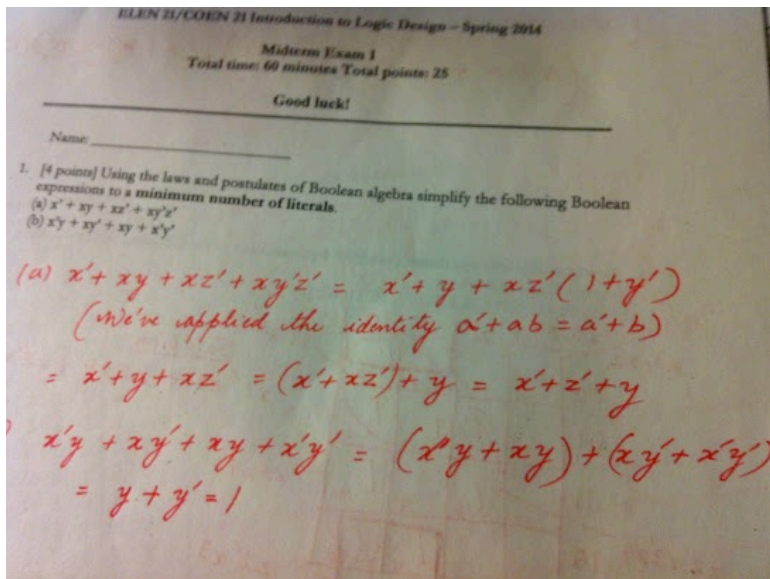 ELEN 21/COEN 21 Introduction to Logic Design – Spring 2014
Midterm Exam 1
Total time: 60 minutes Total points: 25
Good luck!
Name:
1. [4 points] Using the laws and postulates of Boolean algebra simplify the following Boolean
expressions to a minimum number of literals.
(a) x' + xy + xz' + xy'z'
(b) x'y + xy' + xy + x'y'
(a) x' + xy + xz' + xy'z' = x' + y + xz' (1+y')
(We've applied the identity a'+ab = a'+b)
= x'+y+xz' = (x'+xz')+y = x'+z'+y
) x'y + xy' + xy + x'y' = (x'y+xy)+(xy'+x'y')
= y+y'=1